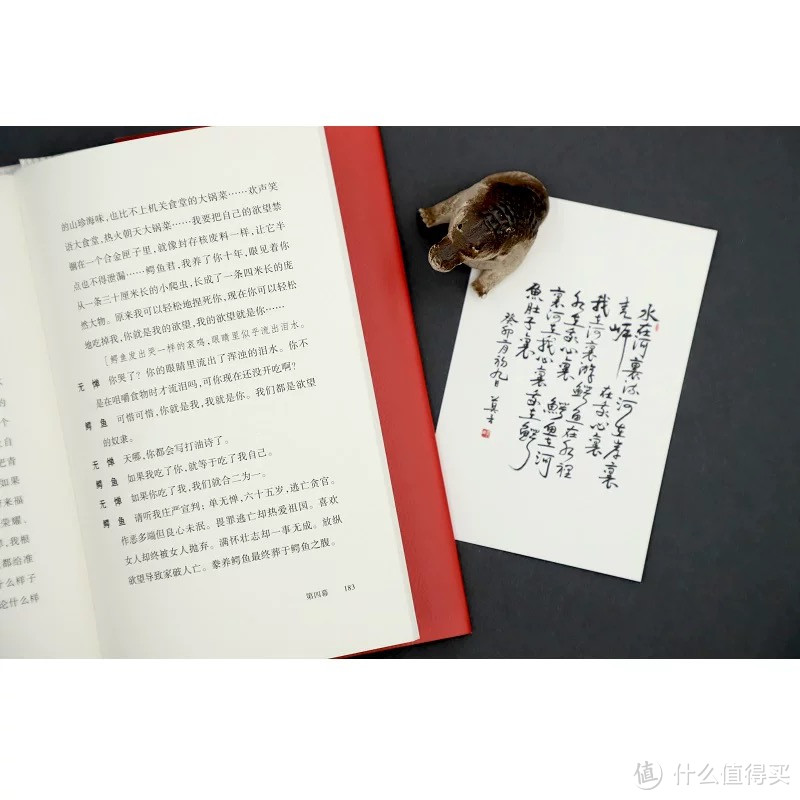 个
如果
来福
荣耀。
，我根
都给准
什么样子
论什么样
的山珍海味，也比不上机关食堂的大锅菜……欢声笑
语大食堂，热火朝天大锅菜……我要把自己的欲望禁
锢在一个合金匣子里，就像封存核废料一样，让它半
点也不得泄漏……鳄鱼君，我养了你十年，眼见着你
从一条三十厘米长的小爬虫，长成了一条四米长的庞
然大物。原来我可以轻松地捏死你，现在你可以轻松
地吃掉我，你就是我的欲望，我的欲望就是你……
［鳄鱼发出哭一样的哀鸣，眼睛里似乎流出泪水。
无惮 你哭了？你的眼睛里流出了浑浊的泪水。你不
是在咀嚼食物时才流泪吗，可你现在还没开吃啊？
鳄鱼 可惜可惜，你就是我，我就是你。我们都是欲望
的奴隶。
无惮 天哪，你都会写打油诗了。
鳄鱼 如果我吃了你，就等于吃了我自己。
无惮 如果你吃了我，我们就合二为一。
鳄鱼 请听我庄严宣判：单无惮，六十五岁，逃亡贪官。
作恶多端但良心未泯。畏罪逃亡却热爱祖国。喜欢
女人却终被女人抛弃。满怀壮志却一事无成。放纵
欲望导致家破人亡。豢养鳄鱼最终葬于鳄鱼之腹。
第四幕 183
水在河裏流河在岸裏
走岸在我心裏
我在河裏游鳄鱼在水裡
水在我心裏鳄鱼在河
裏河在我心裏我在鳄
魚肚子裏
癸卯 月初九日 莫言
值 什么值得买